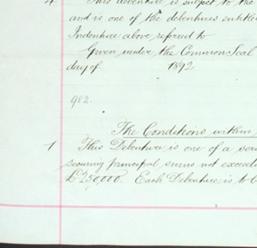 4. This debenture is subject to the
and is one of the debentures entitled
Indenture above referred to
Given under the Common Seal
day of 1892
982.
The Conditions within
1 This Debenture is one of a
securing principal sums not
£250,000. Each Debenture is to